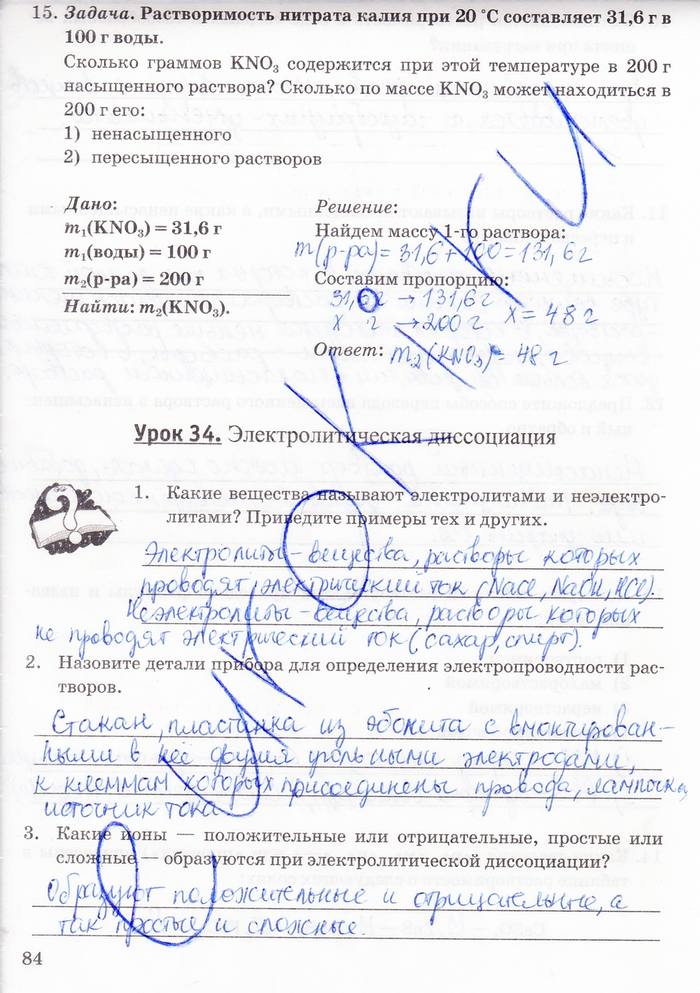 15. Задача. Растворимость нитрата калия при 20 °С составляет 31,6 г в
100 г воды.
Сколько граммов KNO₃ содержится при этой температуре в 200 г
насыщенного раствора? Сколько по массе KNO₃ может находиться в
200 г его:
1) ненасыщенного
2) пересыщенного растворов
Дано:
m₁(KNO₃) = 31,6 г
m₁(воды) = 100 г
m₂(р-ра) = 200 г
Найти: m₂(KNO₃).
Решение:
Найдем массу 1-го раствора:
m(р-ра) = 31,6 + 100 = 131,6 г
Составим пропорцию:
31,6 г → 131,6 г
х г → 200 г х = 48 г
Ответ: m₂(KNO₃) = 48 г
Урок 34. Электролитическая диссоциация
1. Какие вещества называют электролитами и неэлектро-
литами? Приведите примеры тех и других.
Электролиты – вещества, растворы которых
проводят электрический ток (NaCl, NaOH, HCl).
Неэлектролиты – вещества, растворы которых
не проводят электрический ток (сахар, спирт).
2. Назовите детали прибора для определения электропроводности рас-
творов.
Стакан, пластинка из эбонита с вмонтирован-
ными в нее двумя угольными электродами,
к клеммам которых присоединены провода, лампочка,
источник тока
3. Какие ионы — положительные или отрицательные, простые или
сложные — образуются при электролитической диссоциации?
Образуют положительные и отрицательные, а
так простые и сложные.
84